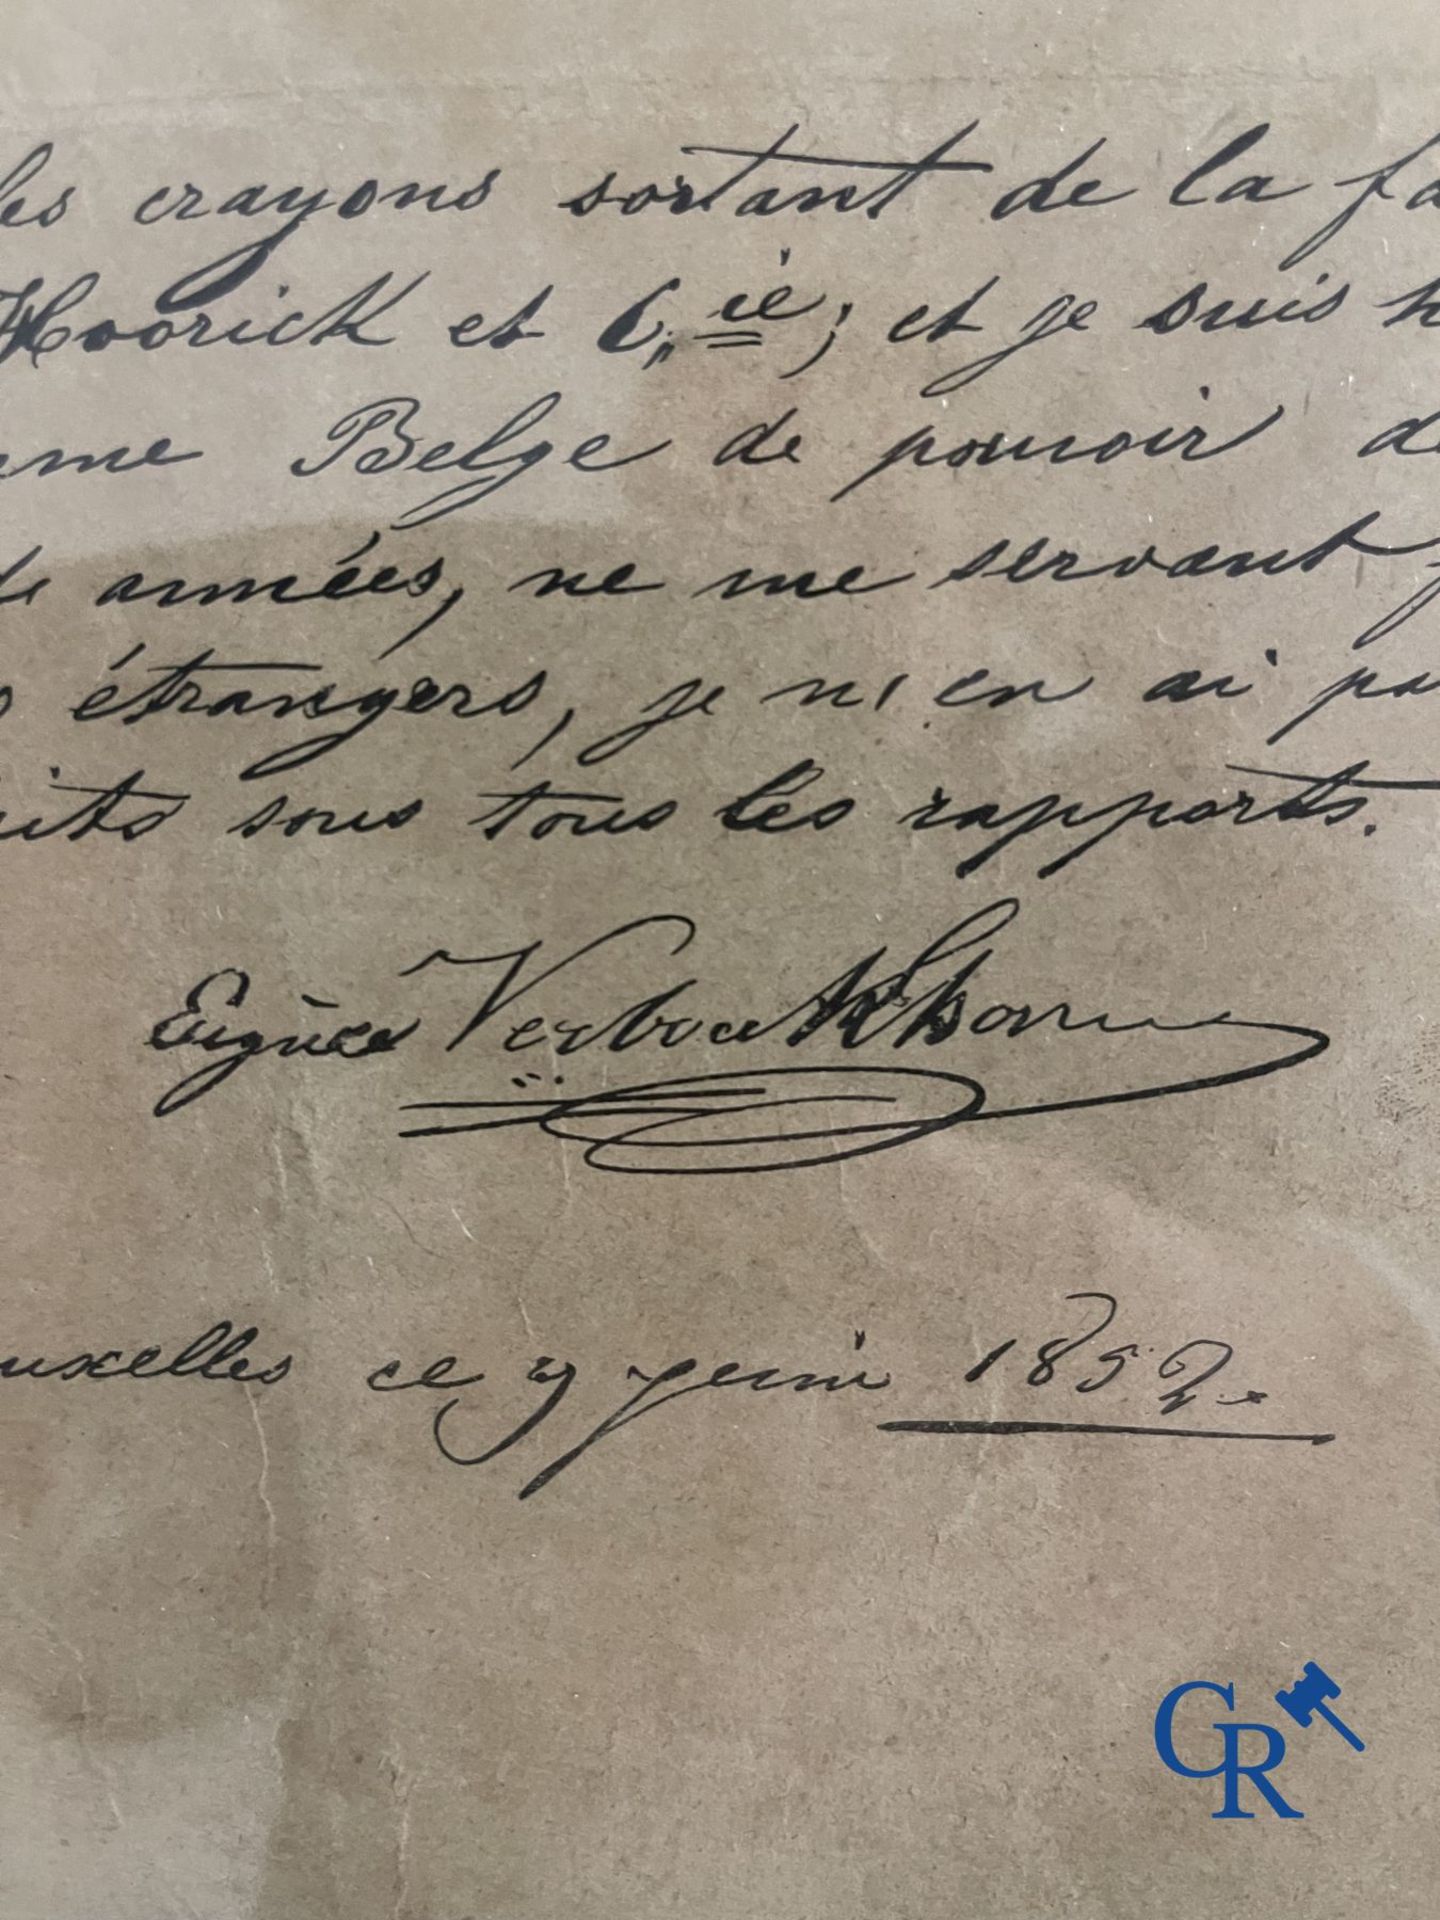 les crayons sortant de la fa
Hoorick et C.ie; et je suis h
me Belge de pouvoir de
de années, ne me servant p
s étrangers, je n'en ai pa
uits sous tous les rapports.
Eugène Verboeckhoven
uxelles ce 9 juin 1852.
CR